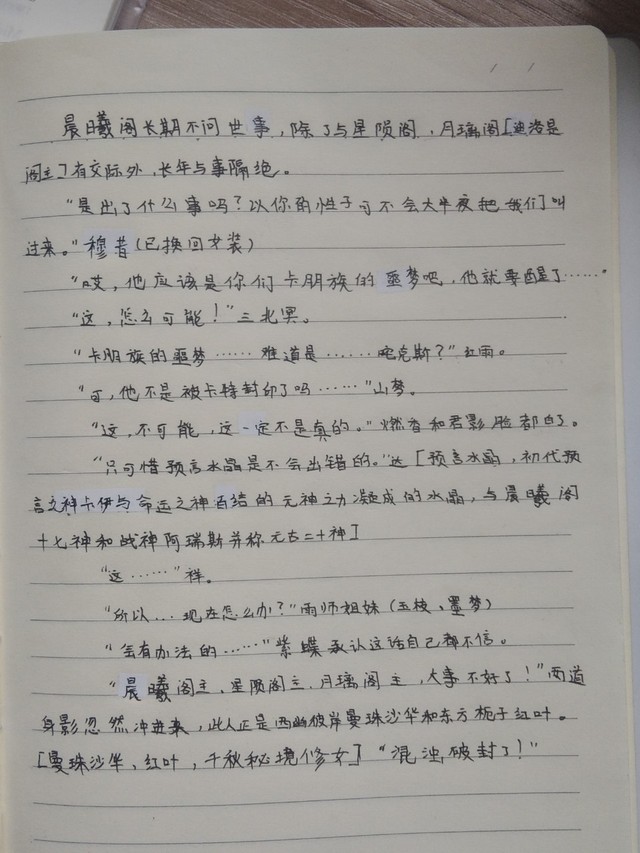 晨曦阁长期不问世事，除了与星陨阁、月璃阁[迪洛是
阁主]有交际外，长年与事隔绝。
"是出了什么事吗？以你的性子可不会大半夜把我们叫
过来。"穆昔(已换回女装)
"哎，他应该是你们卡朋族的噩梦吧，他就要醒了……。
"这，怎么可能！"三北冥。
"卡朋族的噩梦……难道是……喀克斯？"红雨。
"可，他不是被卡特封印了吗……"山梦。
"这，不可能，这一定不是真的。"燃香和君影脸都白了。
"只可惜预言水晶是不会出错的。"达[预言水晶，初代预
言之神卡伊与命运之神百结的元神之力凝成的水晶，与晨曦阁
十七神和战神阿瑞斯并称元古二十神]
"这……"祥。
"所以...现在怎么办？"雨师姐妹(玉枝、墨梦)
"会有办法的……"紫蝶承认这话自己都不信。
"晨曦阁主、星陨阁主、月璃阁主，大事不好了！"两道
身影忽然冲进来，此人正是西幽彼岸曼珠沙华和东方栀子红叶。
[曼珠沙华、红叶，千秋秘境修女]"混浊破封了！"